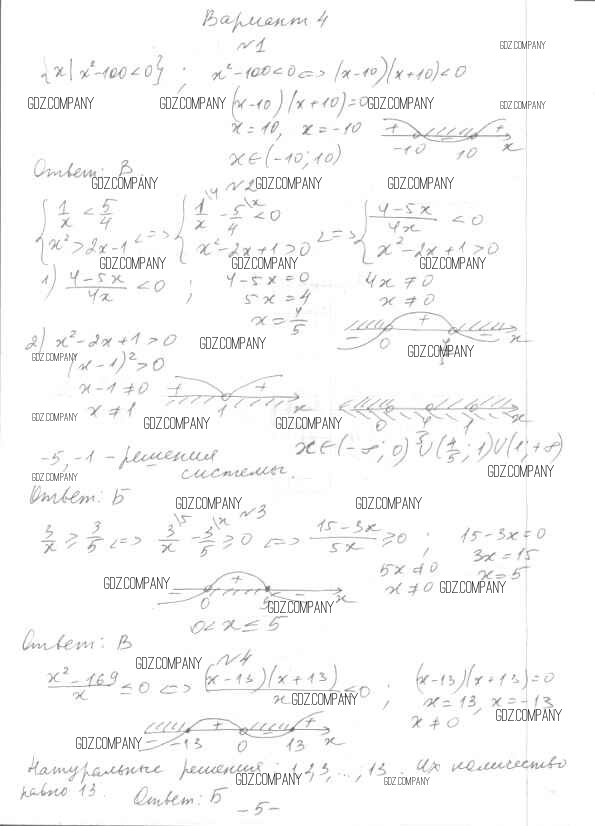 Вариант 4
№1
GDZ.COMPANY
{x | x²-100<0} ; x²-100<0 <=> (x-10)(x+10)<0
GDZ.COMPANY GDZ.COMPANY (x-10)(x+10)=0 GDZ.COMPANY GDZ.COMPANY
x=10, x=-10
+ - + -10 10 x
x∈(-10;10)
Ответ: В
GDZ.COMPANY GDZ.COMPANY GDZ.COMPANY
№2
{ 1/x < 5/4 <=> { 1/x - 5/4 < 0 <=> { (4-5x)/4x < 0
x² > 2x-1 x²-2x+1>0 x²-2x+1>0
GDZ.COMPANY GDZ.COMPANY GDZ.COMPANY
1) (4-5x)/4x < 0 ; 4-5x=0 4x≠0
5x=4 x≠0
x=4/5
- 0 + 4/5 - x
2) x²-2x+1>0 GDZ.COMPANY GDZ.COMPANY
GDZ.COMPANY
(x-1)²>0
x-1≠0
+ 1 + x
x≠1
GDZ.COMPANY GDZ.COMPANY GDZ.COMPANY
0 4/5 1 x
x∈(-∞;0)∪(4/5;1)∪(1;+∞)
-5,-1 - решения
системы.
GDZ.COMPANY GDZ.COMPANY
Ответ: Б
GDZ.COMPANY GDZ.COMPANY
№3
3/x ≥ 3/5 <=> 3/x - 3/5 ≥ 0 <=> (15-3x)/5x ≥ 0 ; 15-3x=0
5x≠0 3x=15
x≠0 x=5
GDZ.COMPANY GDZ.COMPANY
- 0 + 5 - x
GDZ.COMPANY
0<x≤5
Ответ: В
GDZ.COMPANY
№4
(x²-169)/x ≤0 <=> (x-13)(x+13)/x ≤0 ; (x-13)(x+13)=0
GDZ.COMPANY
x=13, x=-13
x≠0
GDZ.COMPANY
GDZ.COMPANY
- -13 + 0 - 13 + x
Натуральные решения: 1,2,3,...,13. Их количество
GDZ.COMPANY GDZ.COMPANY
равно 13. Ответ: Б
-5-